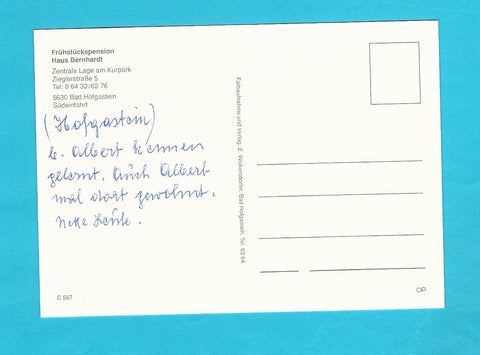 Frühstückspension
Haus Bernhardt
Zentrale Lage am Kurpark
Zieglerstraße 5
Tel: 0 64 32/62 76
5630 Bad Hofgastein
Südeinfahrt
(Hofgastein)
b. Albert kennen
gelernt. Auch Albert
mal dort gewohnt.
Nette Leute.
C 567
Farbaufnahme und Verlag: E. Wolkersdorfer, Bad Hofgastein, Tel. 63 64